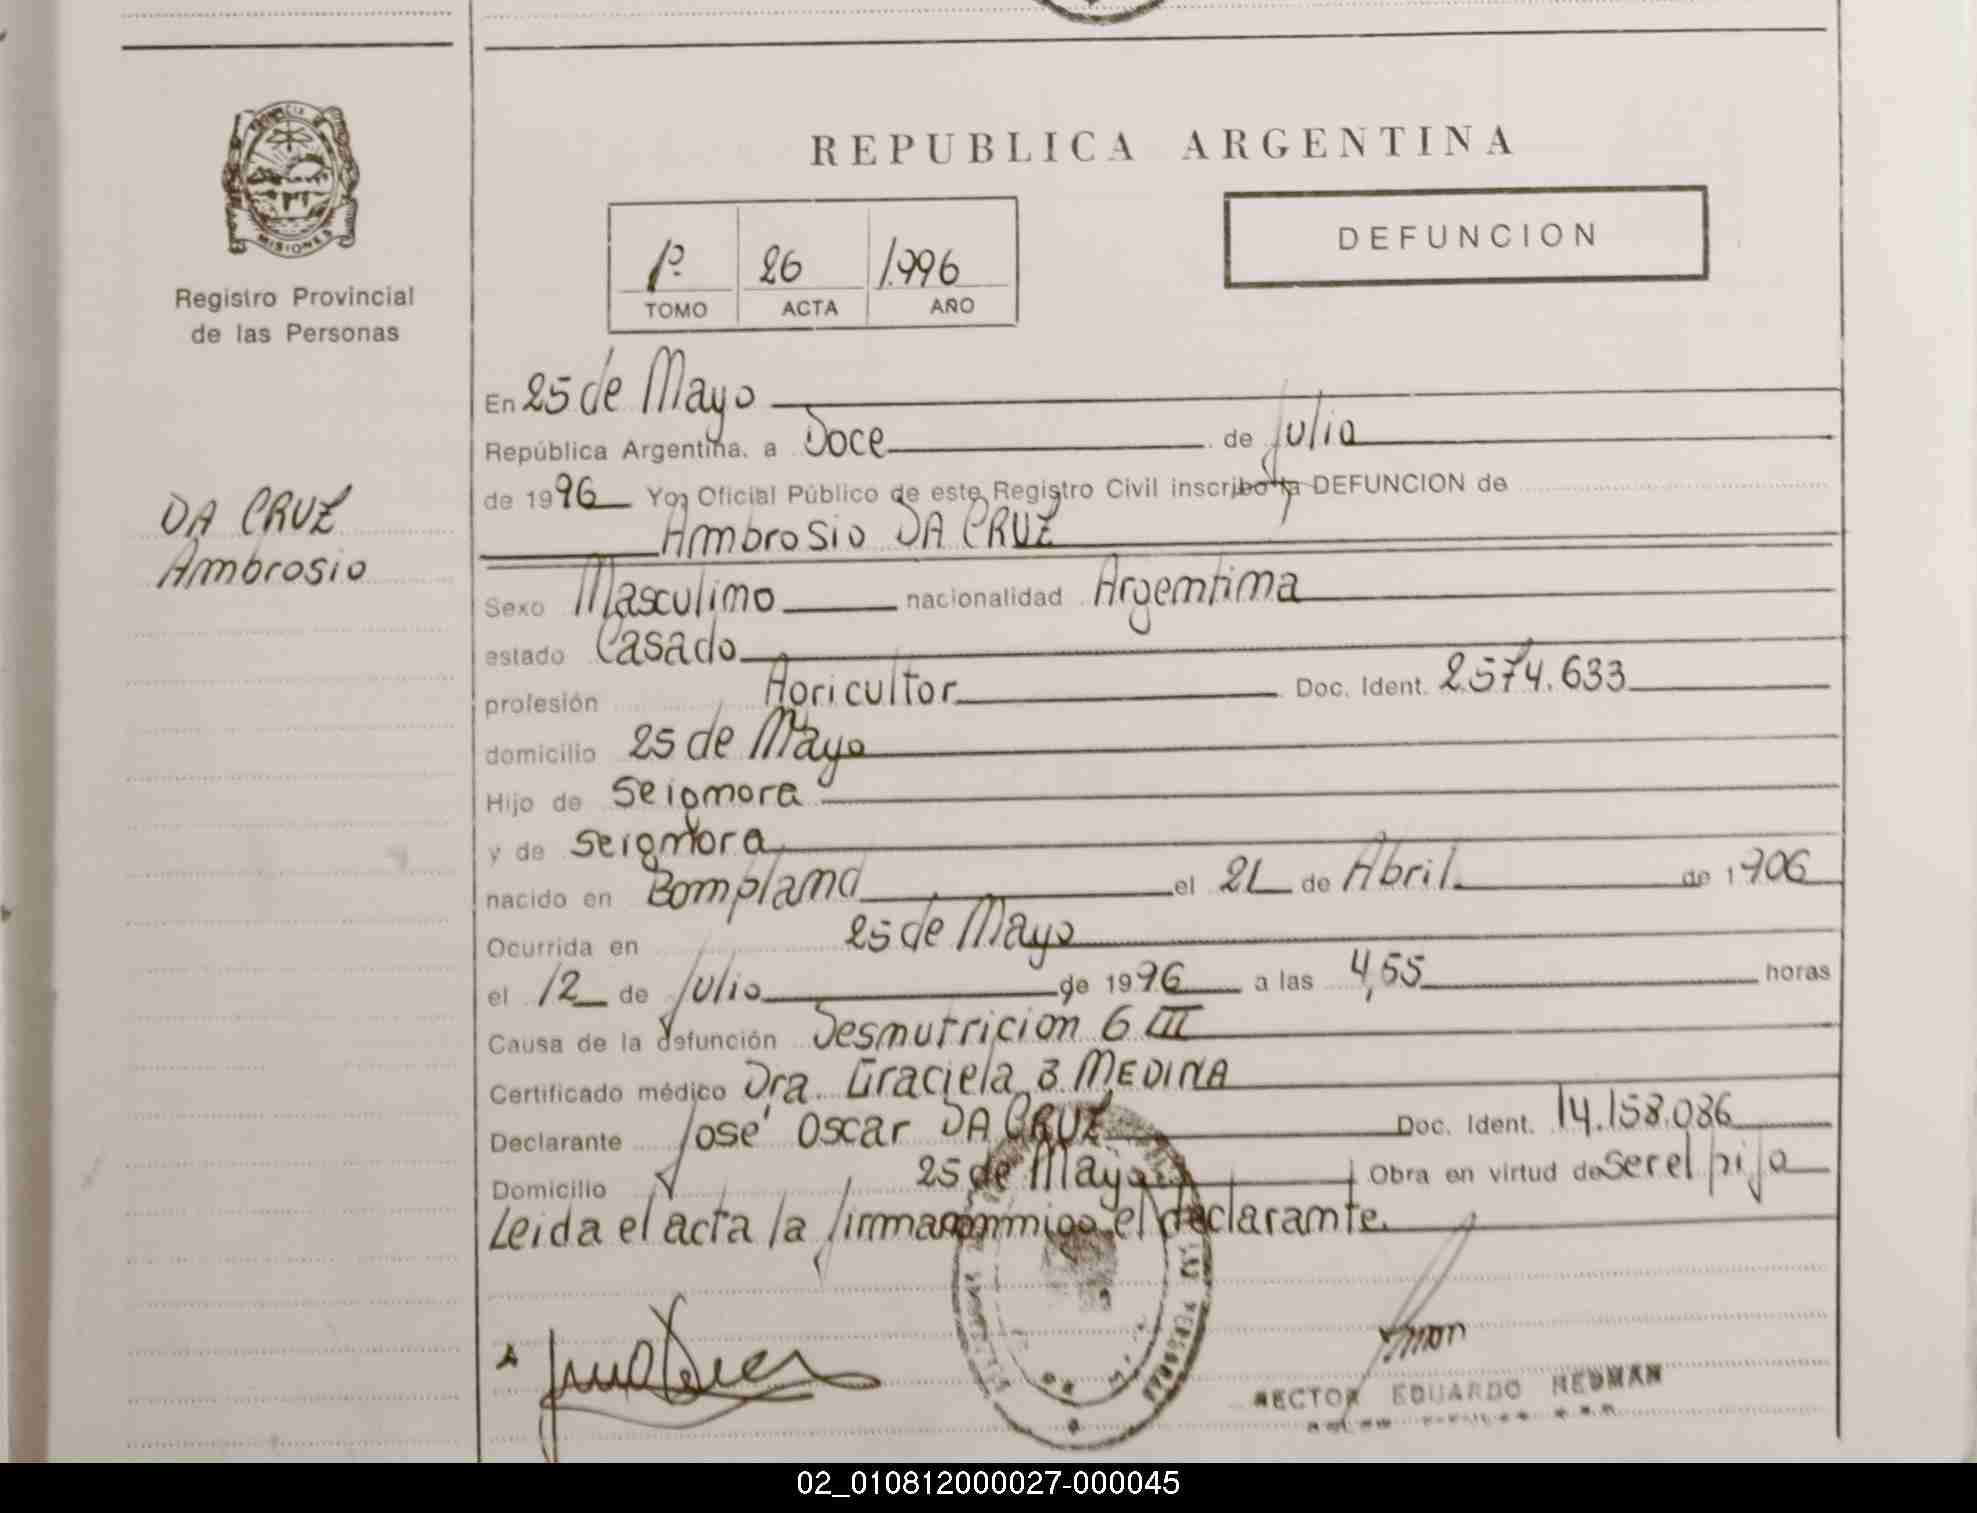 PROVINCIA DE
MISIONES
Registro Provincial
de las Personas
DA CRUZ
Ambrosio
REPUBLICA ARGENTINA
1º 26 1.996
TOMO ACTA AÑO
DEFUNCION
En 25 de Mayo
República Argentina, a Doce de Julio
de 1996 Yo, Oficial Público de este Registro Civil inscribo la DEFUNCION de
Ambrosio DA CRUZ
Sexo Masculino nacionalidad Argentina
estado Casado
profesión Agricultor Doc. Ident. 2.574.633
domicilio 25 de Mayo
Hijo de Seignora
y de Seignora
nacido en Bompland el 21 de Abril de 1906
Ocurrida en 25 de Mayo
el 12 de Julio de 1996 a las 4,55 horas
Causa de la defunción Desnutricion G III
Certificado médico Dra. Graciela B. MEDINA
Declarante José Oscar DA CRUZ Doc. Ident. 14.158.086
Domicilio 25 de Mayo Obra en virtud de ser el hijo
Leida el acta la firma conmigo el declarante.
HECTOR EDUARDO HEDMAN
02_010812000027-000045